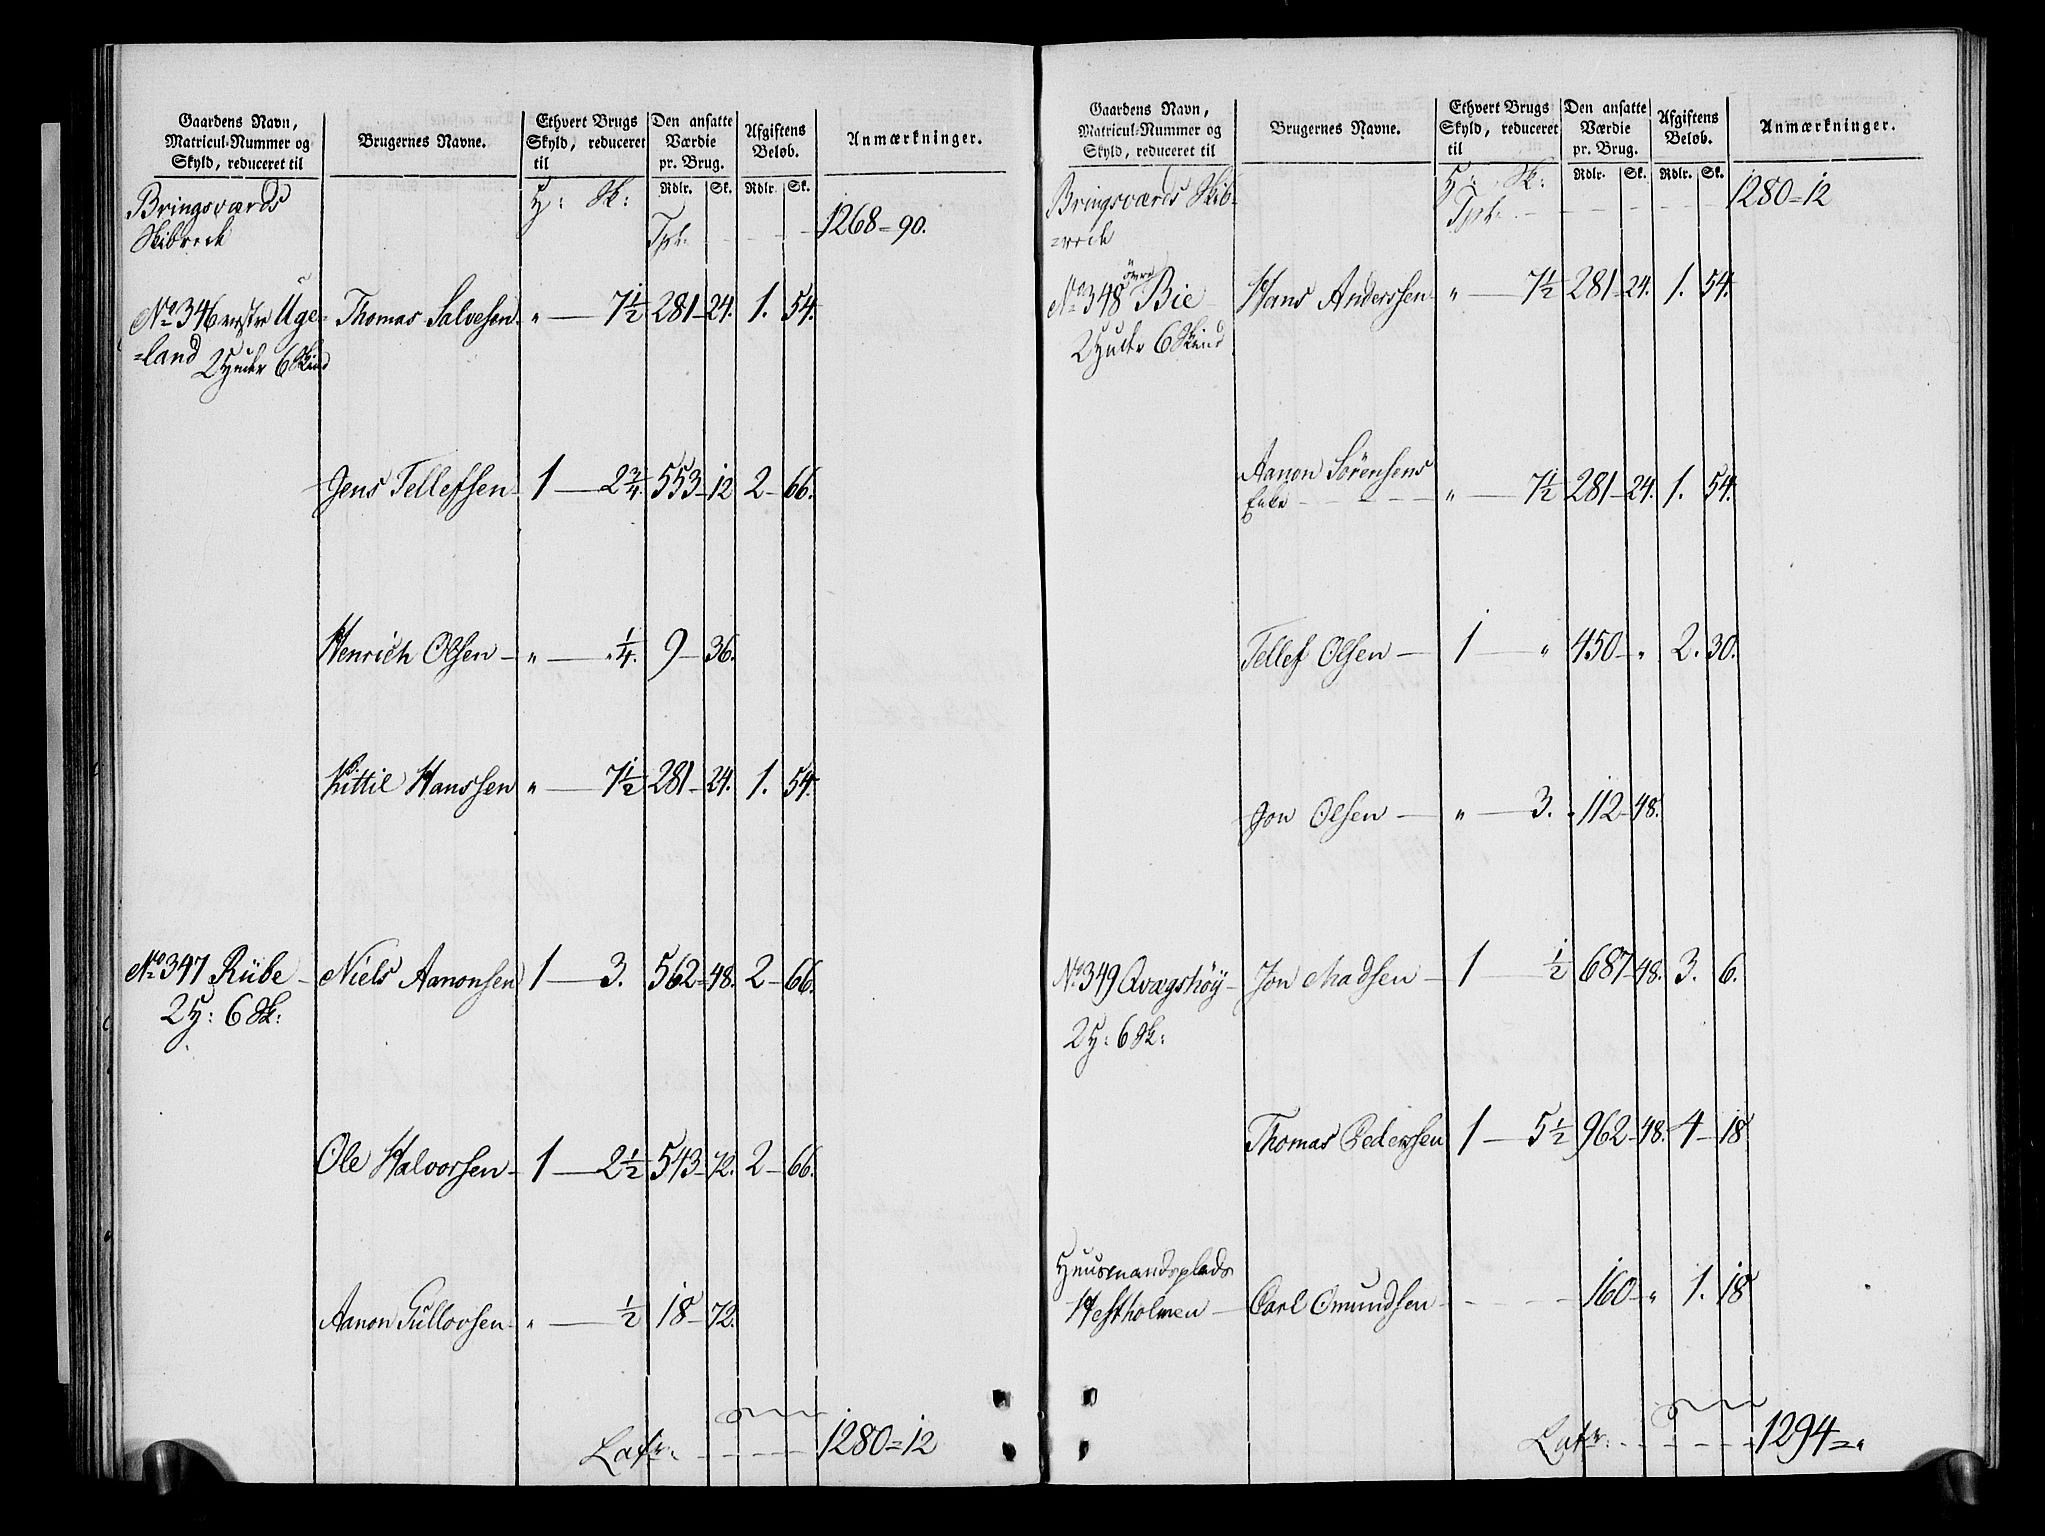 Gaardens Navn, Matricul-Nummer og Skyld, reduceret til | Brugernes Navne. | Ethvert Brugs Skyld, reduceret til | Den ansatte Værdie pr. Brug. | Afgiftens Beløb. | Anmærkninger.
Rdlr. Sk. Rdlr. Sk.
Bringsværds H: Sk:
Skibreck Tpt. - - - 1268=90.
No 346 vestre Uge= Thomas Salvesen. " — 7 1/2 281-24. 1. 54.
=land 2 Huder 6 Skind
Jens Tellefsen 1 — 2 3/4. 553-12 2-66.
Henrich Olsen - " — " 1/4. 9-36.
Kittil Hanssen " — 7 1/2 281-24. 1. 54.
No 347 Rübe - Niels Aanonsen 1 — 3. 562-48. 2-66.
2 H: 6 Sk:
Ole Halvorsen - 1 — 2 1/2 543-72. 2-66.
Aanon Gullovsen - " — 1/2 18-72.
Latr. - - - 1280=12
Gaardens Navn, Matricul-Nummer og Skyld, reduceret til | Brugernes Navne. | Ethvert Brugs Skyld, reduceret til | Den ansatte Værdie pr. Brug. | Afgiftens Beløb. | Anmærkninger.
Rdlr. Sk. Rdlr. Sk.
Bringsværds Skib- H: Sk: 1280=12
=reck Tpt. - - -
No 348 øvre Bie - Hans Anderssen " — 7 1/2 281-24. 1. 54.
2 Huder 6 Skind
Aanon Sörensens
Enke - - - " — 7 1/2 281-24. 1. 54.
Tellef Olsen — 1 — " 450-" 2. 30.
Jon Olsen — " — 3. 112-48.
No 349 Qvægshöy - Jon Madsen - 1 1/2 687-48. 3. 6.
2 H: 6 Sk:
Thomas Pedersen 1 — 5 1/2 962-48. 4-18
Huusmandsplads
Hestholmen — Carl Omundsen - - - 160-" 1. 18
Latr. - - - 1294="